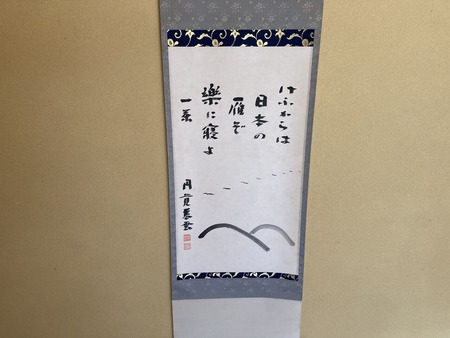 けふからは
日本の
雁ぞ
楽に寝よ
一茶